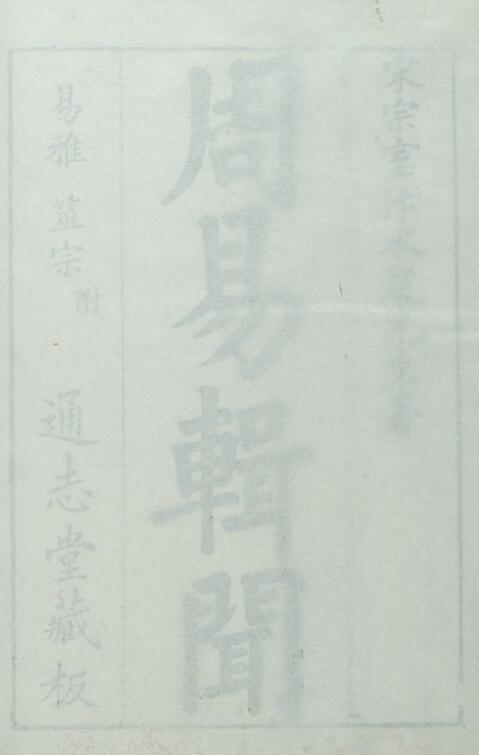 宋宗室
周易輯聞
易雅 筮宗 附
通志堂藏板